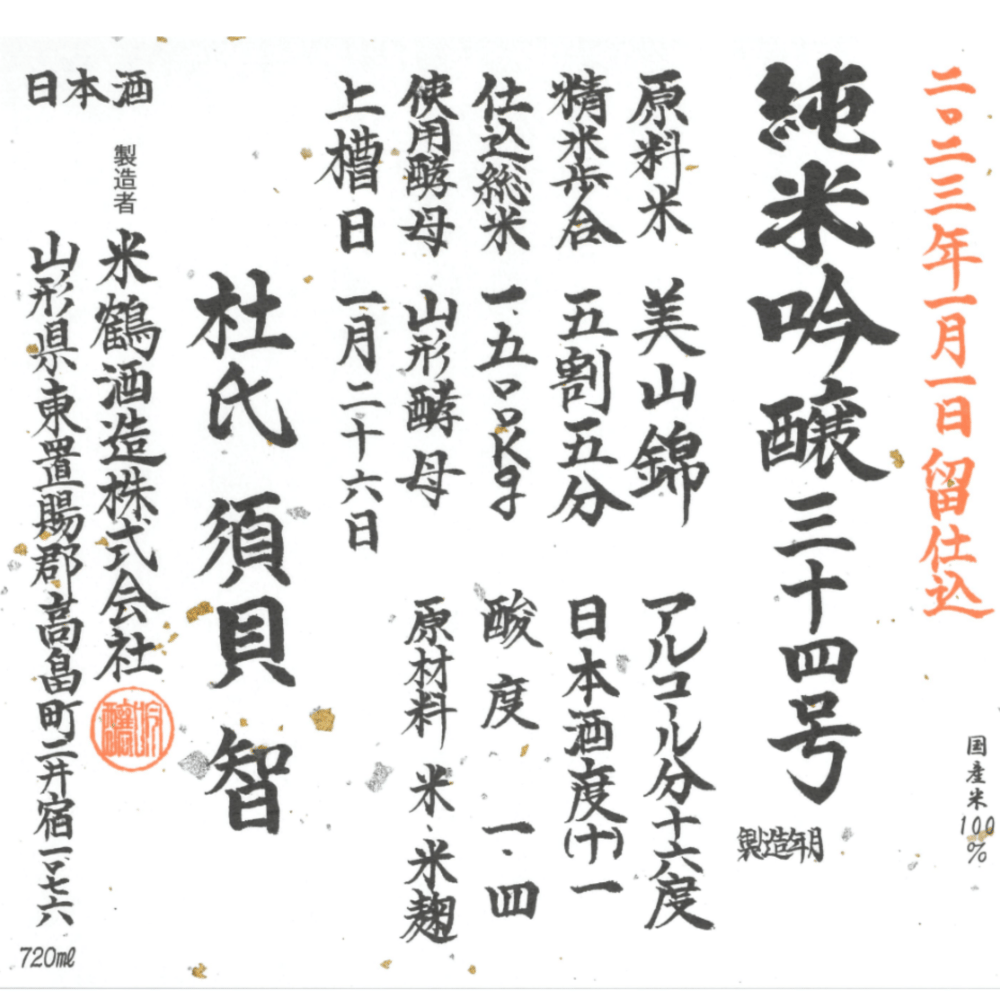 二〇二三年一月一日留仕込
国産米100%
純米吟醸三十四号
製造年月
原料米 美山錦
アルコール分十六度
精米歩合 五割五分
日本酒度(十)一
仕込総米 一.五〇〇kg
酸度 一.四
使用酵母 山形酵母
原材料 米、米麹
上槽日 一月二十六日
杜氏 須貝 智
日本酒
製造者
米鶴酒造株式会社
山形県東置賜郡高畠町二井宿一〇七六
720ml